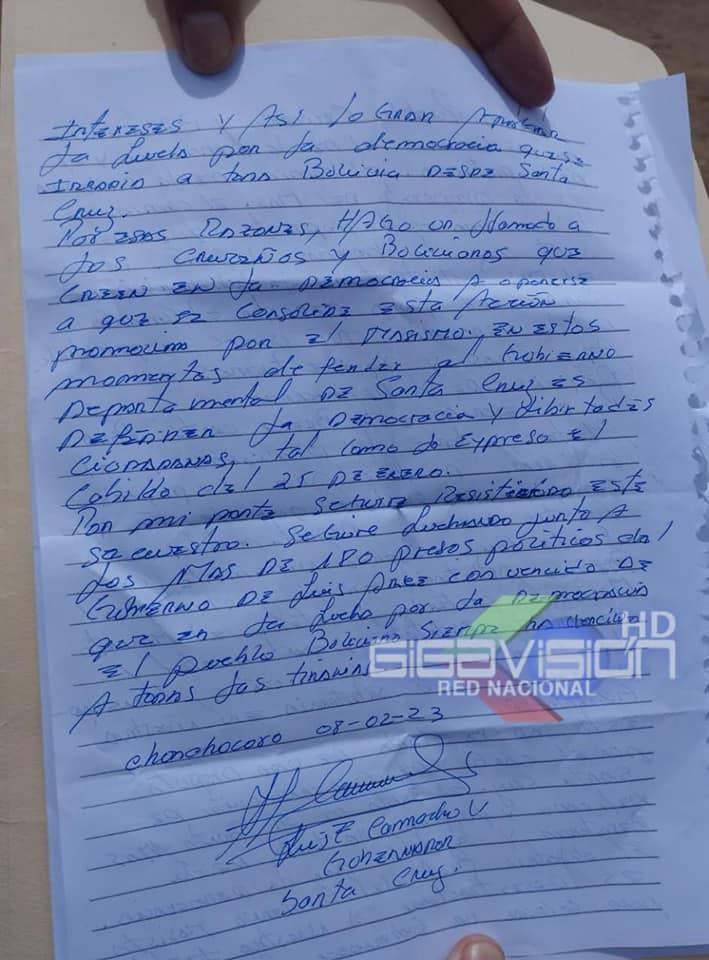 Intereses y Así lograr Apagar
la lucha por la democracia que se
Irradia a toda Bolivia desde Santa
Cruz.
Por esas Razones, Hago un llamado a
los Cruceños y Bolivianos que
creen en la democracia a oponerse
a que se consolide esta Acción
promovida por el Masismo. En estos
momentos defender al Gobierno
Departamental de Santa Cruz es
Defender la Democracia y libertades
Ciudadanas, tal como lo Expreso El
Cabildo del 25 de Enero.
Por mi parte Seguire Resistiendo Este
Secuestro. Seguire luchando junto A
los Mas de 180 presos políticos del
Gobierno de Luis Arce convencido de
que en la lucha por la Democracia
El pueblo Boliviano Siempre ha vencido
A todas las
HD
GIGAVISIÓN
RED NACIONAL
Chonchocoro 08-02-23
Luis F Camacho V
Gobernador
Santa Cruz.